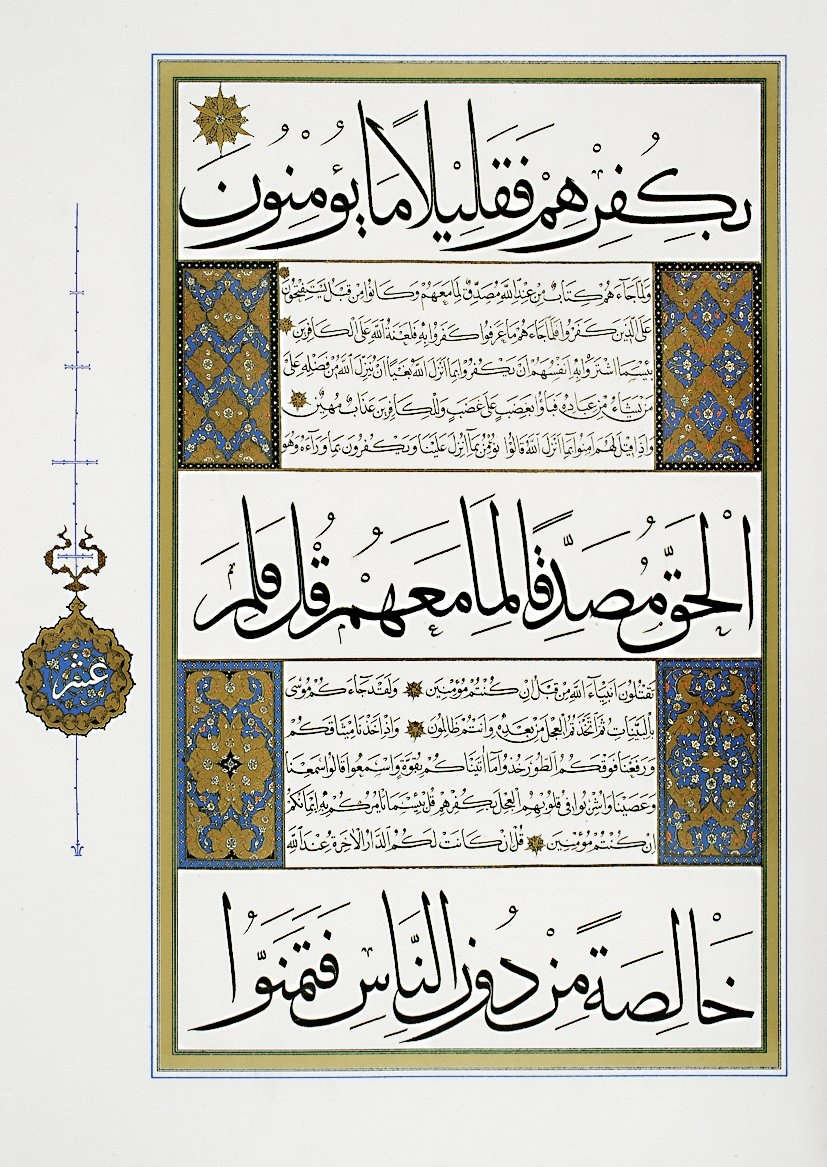 بِكُفْرِهِمْ فَقَلِيلًا مَا يُؤمِنُونَ
وَلَمَّا جَاءَهُمْ كِتَابٌ مِنْ عِنْدِ اللَّهِ مُصَدِّقٌ لِمَا مَعَهُمْ وَكَانُوا مِنْ قَبْلُ يَسْتَفْتِحُونَ
عَلَى الَّذِينَ كَفَرُوا فَلَمَّا جَاءَهُمْ مَا عَرَفُوا كَفَرُوا بِهِ فَلَعْنَةُ اللَّهِ عَلَى الْكَافِرِينَ
بِئْسَمَا اشْتَرَوْا بِهِ أَنْفُسَهُمْ أَنْ يَكْفُرُوا بِمَا أَنْزَلَ اللَّهُ بَغْيًا أَنْ يُنَزِّلَ اللَّهُ مِنْ فَضْلِهِ عَلَى
مَنْ يَشَاءُ مِنْ عِبَادِهِ فَبَاؤُا بِغَضَبٍ عَلَى غَضَبٍ وَلِلْكَافِرِينَ عَذَابٌ مُهِينٌ
وَإِذَا قِيلَ لَهُمْ آمِنُوا بِمَا أَنْزَلَ اللَّهُ قَالُوا نُؤْمِنُ بِمَا أُنْزِلَ عَلَيْنَا وَيَكْفُرُونَ بِمَا وَرَآءَهُ وَهُوَ
الْحَقُّ مُصَدِّقًا لِمَا مَعَهُمْ قُلْ فَلِمَ
تَقْتُلُونَ أَنْبِيَاءَ اللَّهِ مِنْ قَبْلُ إِنْ كُنْتُمْ مُؤْمِنِينَ وَلَقَدْ جَاءَكُمْ مُوسَى
بِالْبَيِّنَاتِ ثُمَّ اتَّخَذْتُمُ الْعِجْلَ مِنْ بَعْدِهِ وَأَنْتُمْ ظَالِمُونَ وَإِذْ أَخَذْنَا مِيثَاقَكُمْ
وَرَفَعْنَا فَوْقَكُمُ الطُّورَ خُذُوا مَا آتَيْنَاكُمْ بِقُوَّةٍ وَاسْمَعُوا قَالُوا سَمِعْنَا
وَعَصَيْنَا وَأُشْرِبُوا فِي قُلُوبِهِمُ الْعِجْلَ بِكُفْرِهِمْ قُلْ بِئْسَمَا يَأْمُرُكُمْ بِهِ إِيمَانُكُمْ
إِنْ كُنْتُمْ مُؤْمِنِينَ قُلْ إِنْ كَانَتْ لَكُمُ الدَّارُ الْآخِرَةُ عِنْدَ اللَّهِ
خَالِصَةً مِنْ دُونِ النَّاسِ فَتَمَنَّوُا
عشر